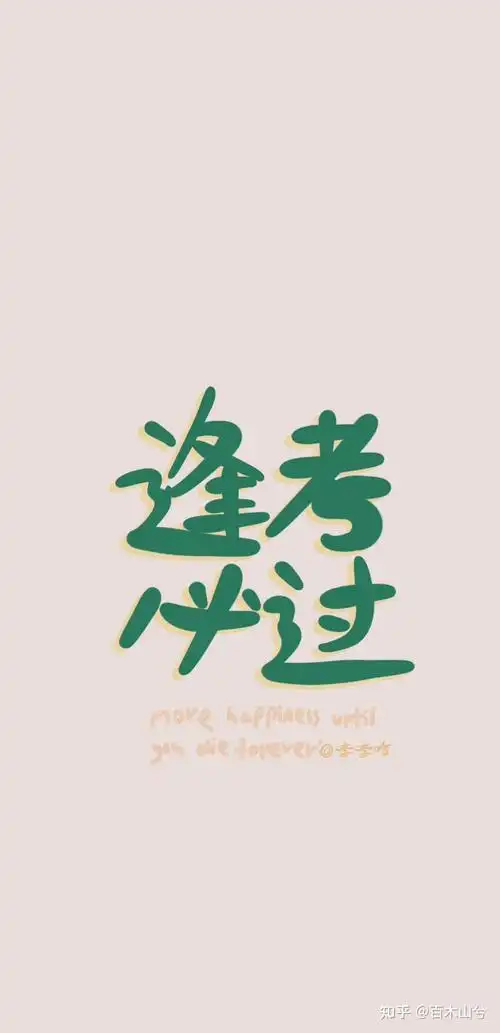 逢考
必过
more happiness until
you die forever
知乎 @百木山兮